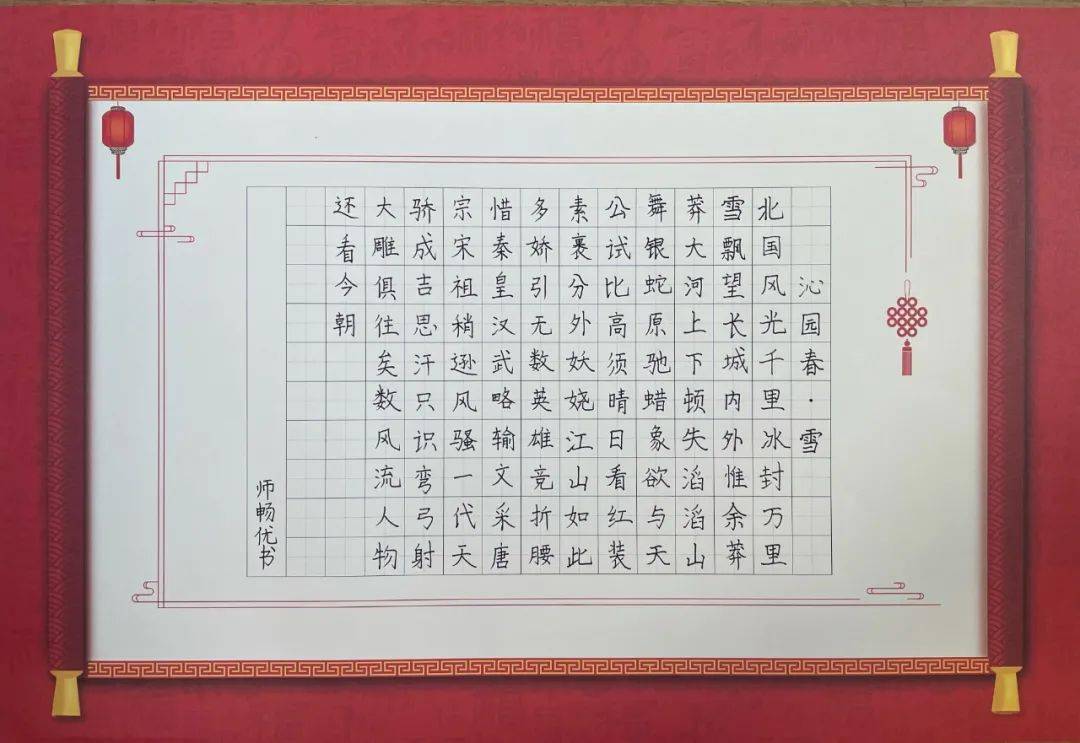 沁园春·雪
北国风光千里冰封万里
雪飘望长城内外惟余莽
莽大河上下顿失滔滔山
舞银蛇原驰蜡象欲与天
公试比高须晴日看红装
素裹分外妖娆江山如此
多娇引无数英雄竞折腰
惜秦皇汉武略输文采唐
宗宋祖稍逊风骚一代天
骄成吉思汗只识弯弓射
大雕俱往矣数风流人物
还看今朝
师畅优书